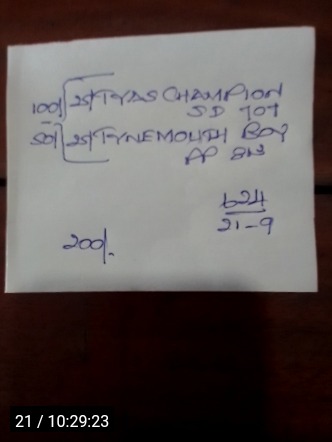 100/ 25/- TYAS CHAMPION
SD TOT
50/ 25/- TYNEMOUTH BOY
PP
624
21-9
200/-
21 / 10:29:23